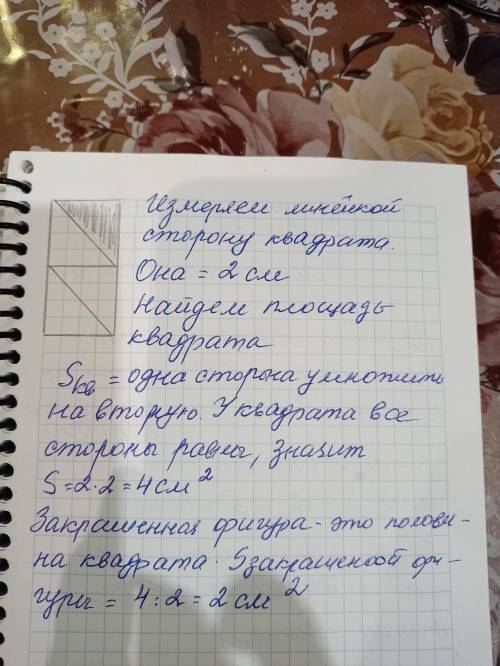 Измеряем линейкой
сторону квадрата.
Она = 2 см
Найдем площадь
квадрата
Sкв = одна сторона умножить
на вторую. У квадрата все
стороны равны, значит
S = 2 · 2 = 4 см²
Закрашенная фигура - это полови-
на квадрата. S закрашеной фи-
гуры = 4 : 2 = 2 см²